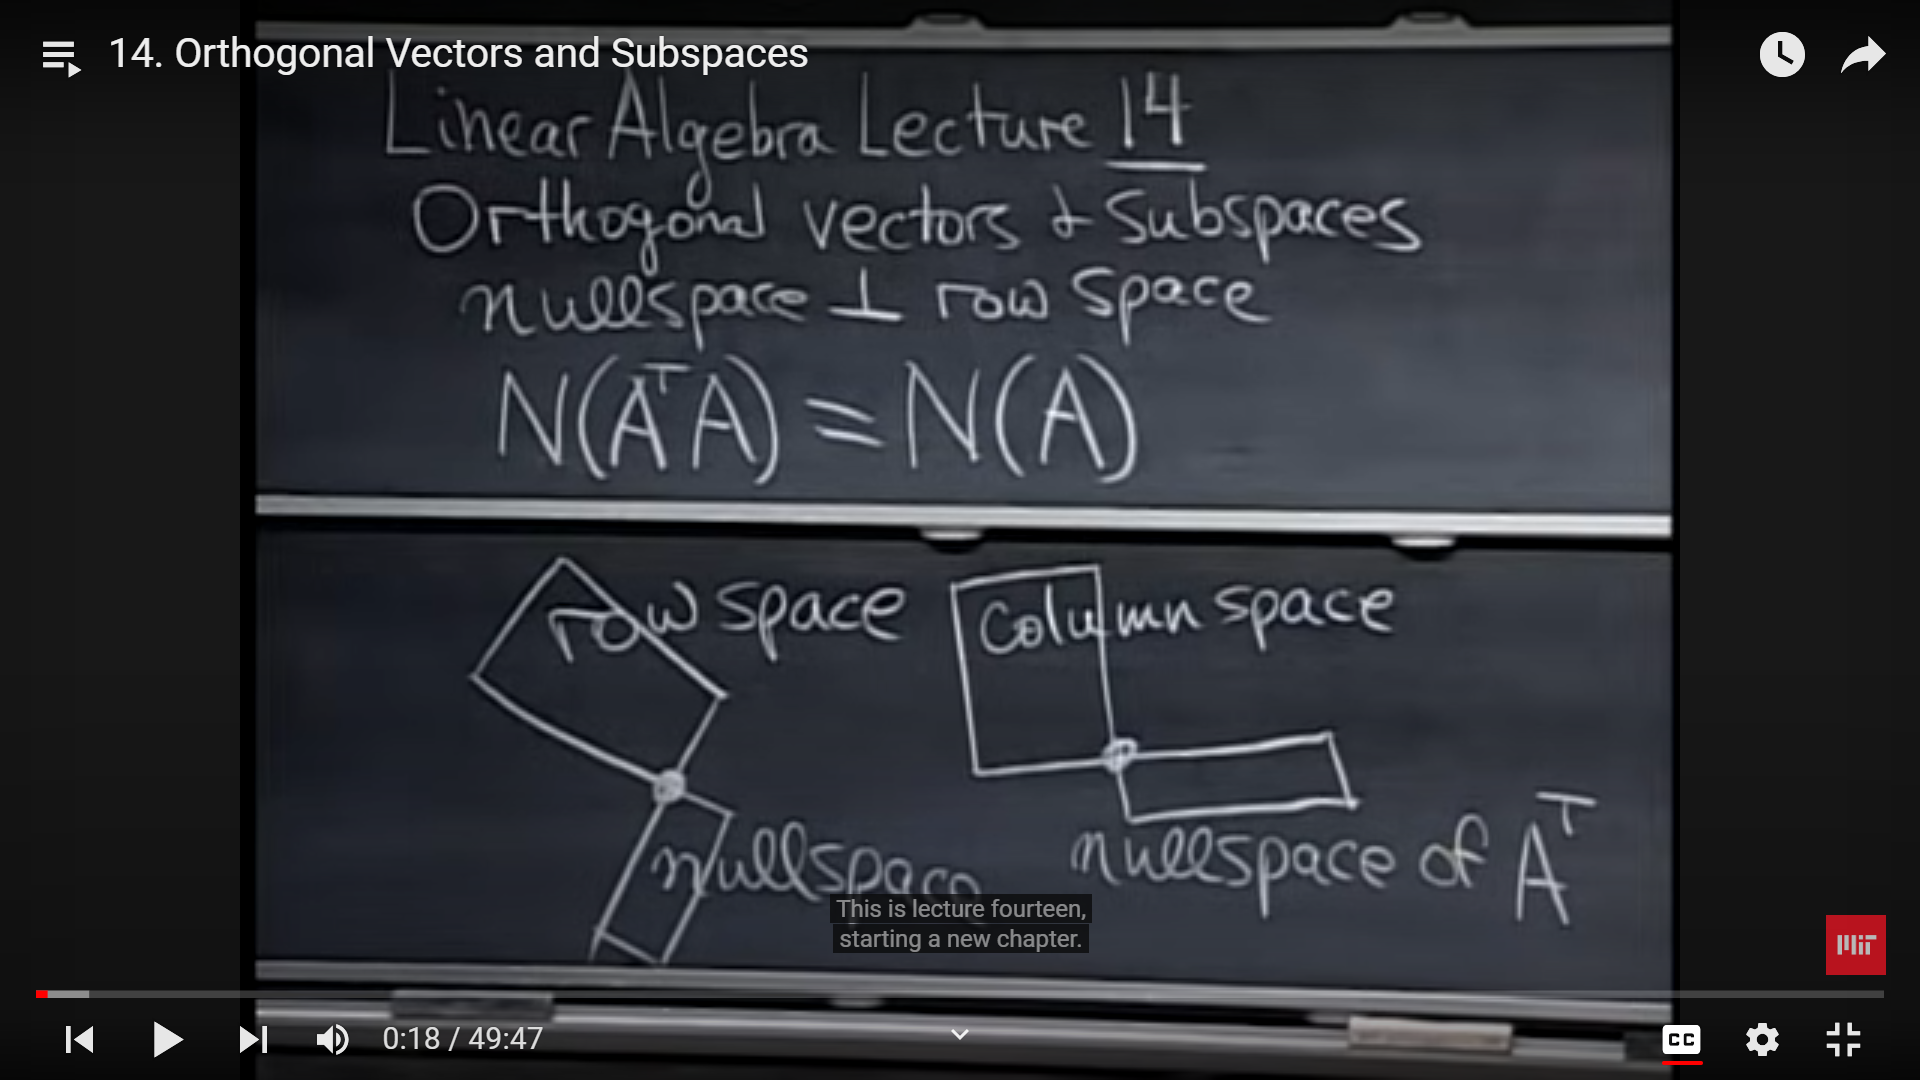 14. Orthogonal Vectors and Subspaces
Linear Algebra Lecture 14
Orthogonal vectors & Subspaces
nullspace ⊥ row space
N(AᵀA) = N(A)
row space
column space
nullspace
nullspace of Aᵀ
This is lecture fourteen,
starting a new chapter.
MIT
0:18 / 49:47
CC